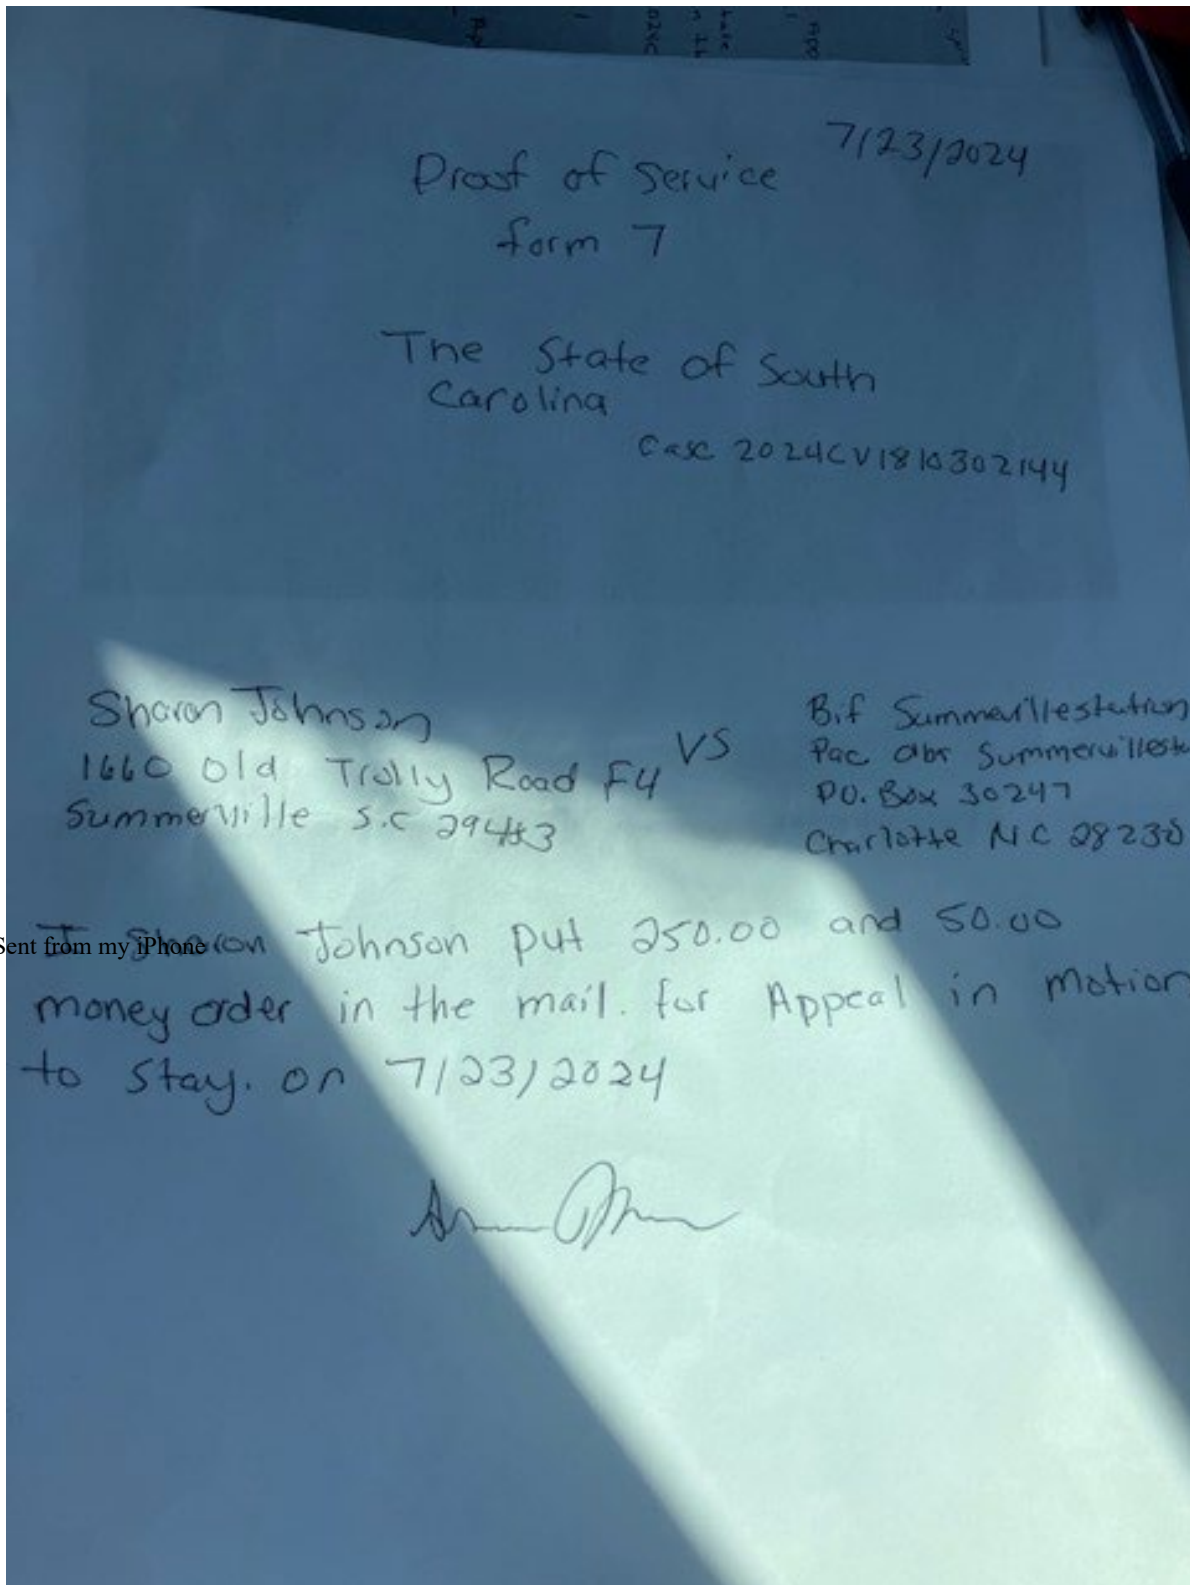 7/23/2024
Proof of Service
form 7
The State of South
Carolina
Case 2024CV1810302144
Sharon Johnson
1660 Old Trolly Road F4
Summerville S.C 29483
VS
B.f Summervillestation
Pac dba Summervillest
P.O. Box 30247
Charlotte N.C 28230
Sent from my iPhone
I Sharon Johnson put 250.00 and 50.00
money order in the mail. for Appeal in motion
to stay. on 7/23/2024